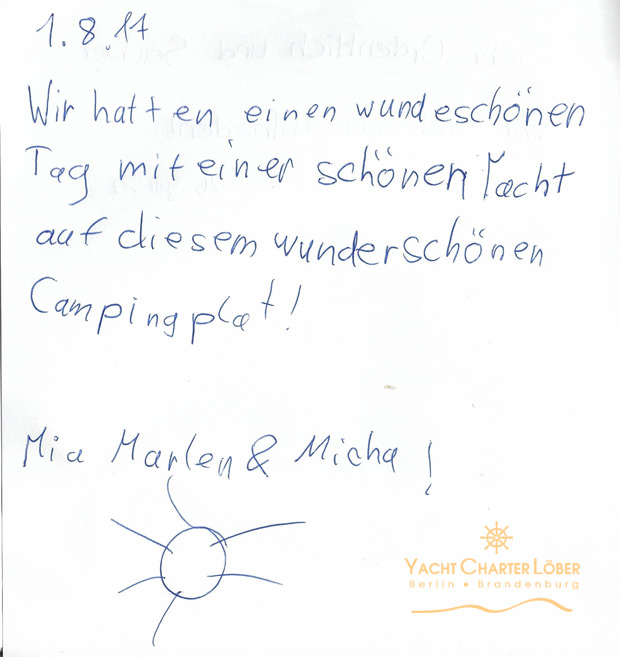 1.8.17
Wir hatten einen wundeschönen
Tag mit einer schönen Yacht
auf diesem wunderschönen
Campingplat!
Mia Marlen & Micha!
YACHT CHARTER LÖBER
Berlin • Brandenburg